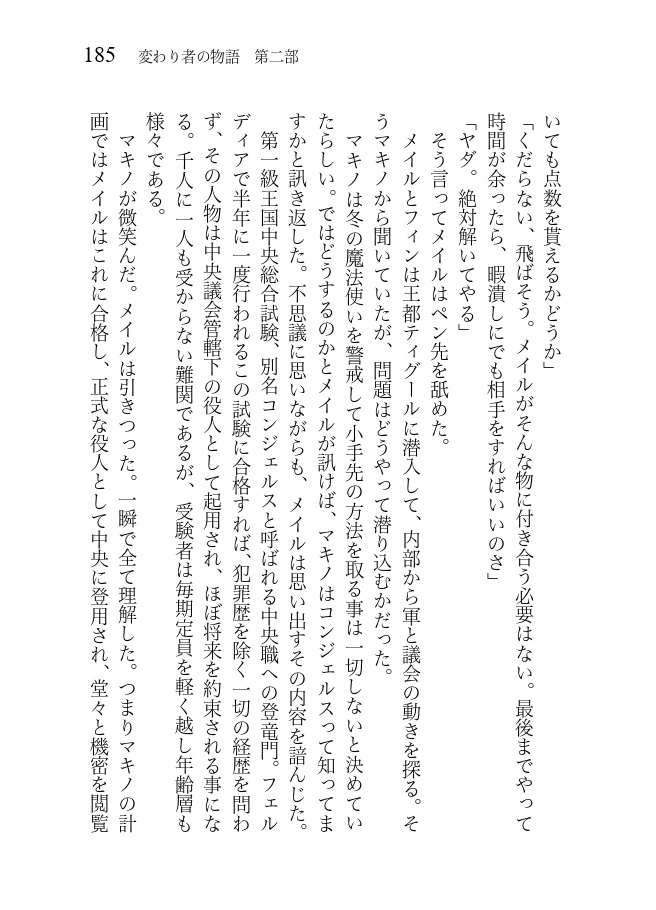 185 変わり者の物語　第二部
いても点数を貰えるかどうか」
「くだらない、飛ばそう。メイルがそんな物に付き合う必要はない。最後までやって
時間が余ったら、暇潰しにでも相手をすればいいのさ」
「ヤダ。絶対解いてやる」
　そう言ってメイルはペン先を舐めた。
　メイルとフィンは王都ティグールに潜入して、内部から軍と議会の動きを探る。そ
うマキノから聞いていたが、問題はどうやって潜り込むかだった。
　マキノは冬の魔法使いを警戒して小手先の方法を取る事は一切しないと決めてい
たらしい。ではどうするのかとメイルが訊けば、マキノはコンジェルスって知ってま
すかと訊き返した。不思議に思いながらも、メイルは思い出すその内容を諳んじた。
　第一級王国中央総合試験、別名コンジェルスと呼ばれる中央職への登竜門。フェル
ディアで半年に一度行われるこの試験に合格すれば、犯罪歴を除く一切の経歴を問わ
ず、その人物は中央議会管轄下の役人として起用され、ほぼ将来を約束される事にな
る。千人に一人も受からない難関であるが、受験者は毎期定員を軽く越し年齢層も
様々である。
　マキノが微笑んだ。メイルは引きつった。一瞬で全て理解した。つまりマキノの計
画ではメイルはこれに合格し、正式な役人として中央に登用され、堂々と機密を閲覧